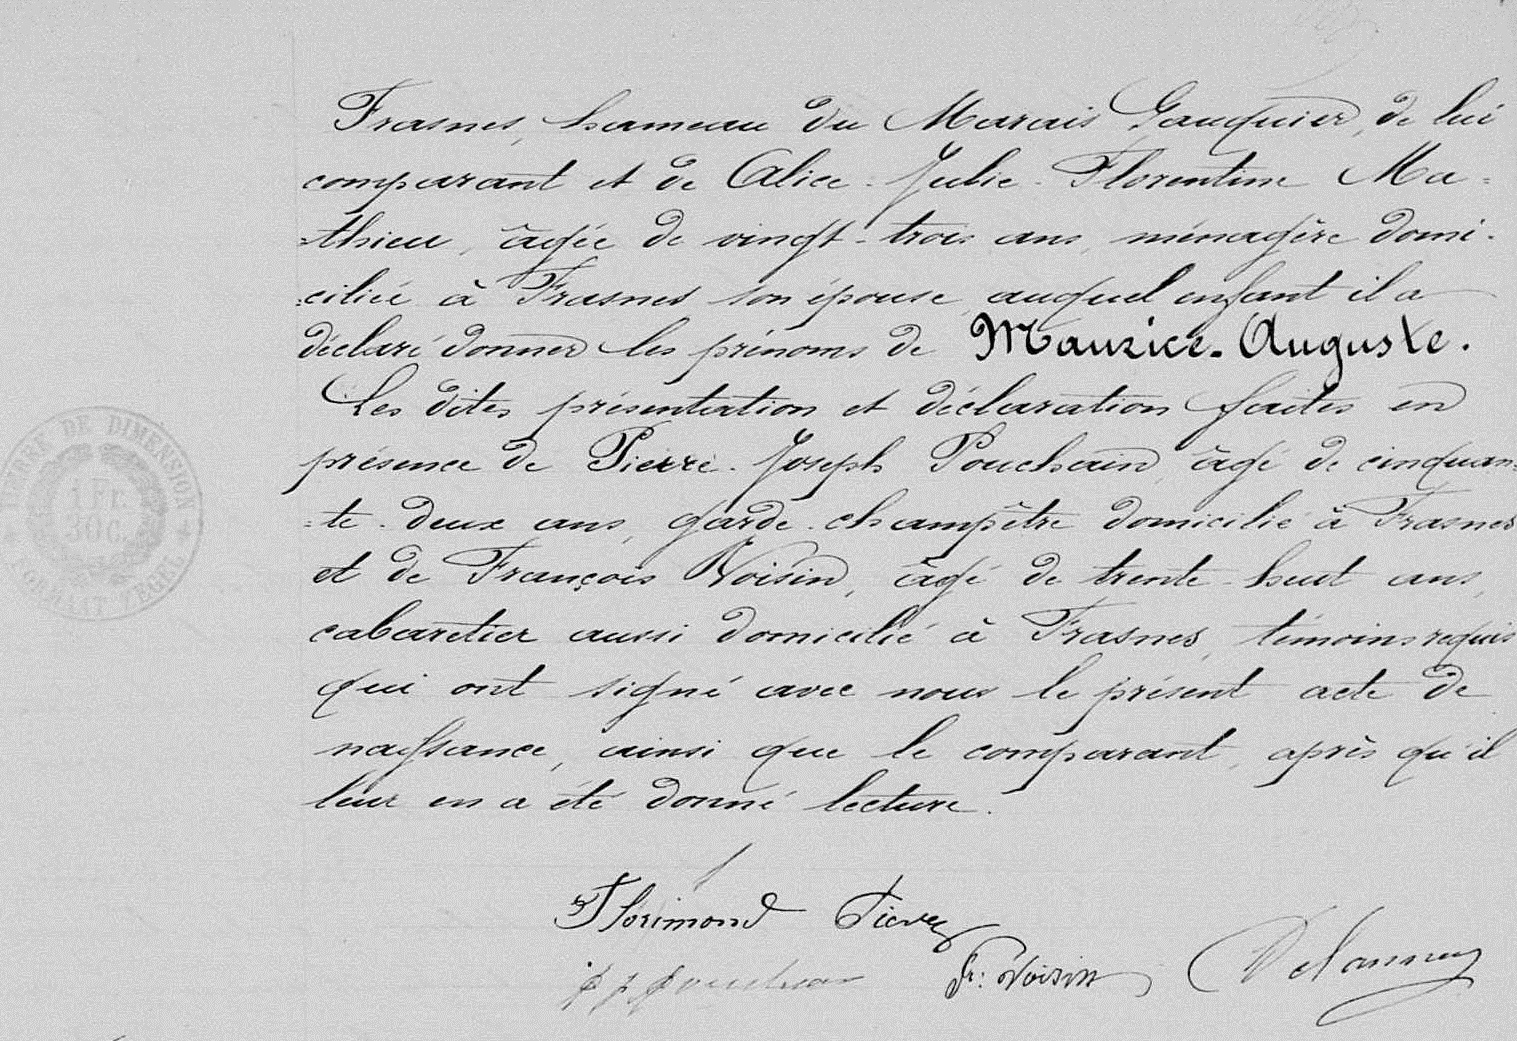 Frasnes, hameau du Marais Gauquier, de lui
comparant et de Alice-Julie-Florentine Ma=
=thieu, âgée de vingt-trois ans, ménagère domi-
=ciliée à Frasnes son épouse, auquel enfant il a
déclaré donner les prénoms de Maurice-Auguste.
Les dites présentation et déclaration faites en
présence de Pierre-Joseph Pouchain, âgé de cinquan=
=te-deux ans, garde-champêtre domicilié à Frasnes
et de François Voisin, âgé de trente-huit ans,
cabaretier aussi domicilié à Frasnes, témoins requis
qui ont signé avec nous le présent acte de
naissance, ainsi que le comparant, après qu'il
leur en a été donné lecture.
TIMBRE DE DIMENSION
1 Fr.
30 C.
FORMAAT ZEGEL
Florimond
Fr: Voisin